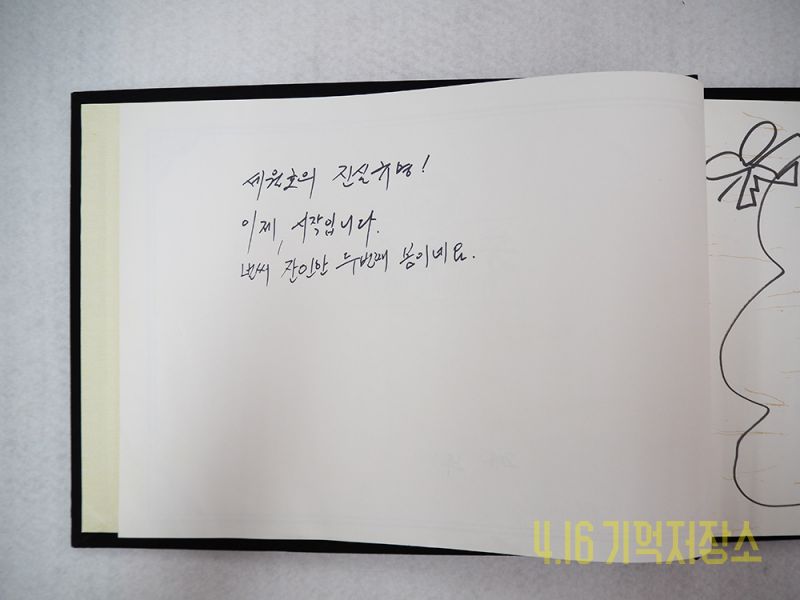 세월호의 진실규명!
이제, 시작입니다.
벌써 잔인한 두번째 봄이네요.
4.16 기억저장소